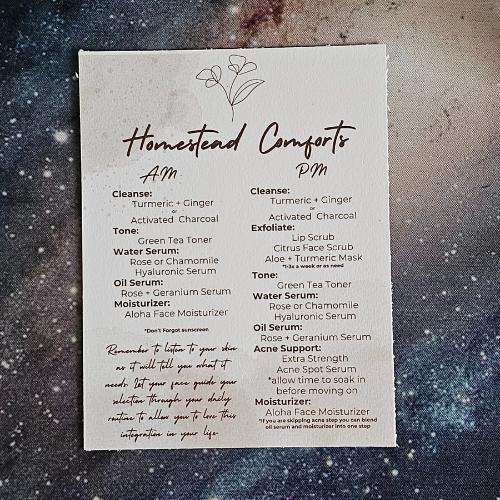 Homestead Comforts
AM
Cleanse:
Turmeric + Ginger
or
Activated Charcoal
Tone:
Green Tea Toner
Water Serum:
Rose or Chamomile
Hyaluronic Serum
Oil Serum:
Rose + Geranium Serum
Moisturizer:
Aloha Face Moisturizer
*Don't Forgot sunscreen
Remember to listen to your skin
as it will tell you what it
needs. Let your face guide your
selection through your daily
routine to allow you to love this
integration in your life.
PM
Cleanse:
Turmeric + Ginger
or
Activated Charcoal
Exfoliate:
Lip Scrub
Citrus Face Scrub
Aloe + Turmeric Mask
*1-3x a week or as need
Tone:
Green Tea Toner
Water Serum:
Rose or Chamomile
Hyaluronic Serum
Oil Serum:
Rose + Geranium Serum
Acne Support:
Extra Strength
Acne Spot Serum
*allow time to soak in
before moving on
Moisturizer:
Aloha Face Moisturizer
*If you are skipping acne step you can blend
oil serum and moisturizer into one step